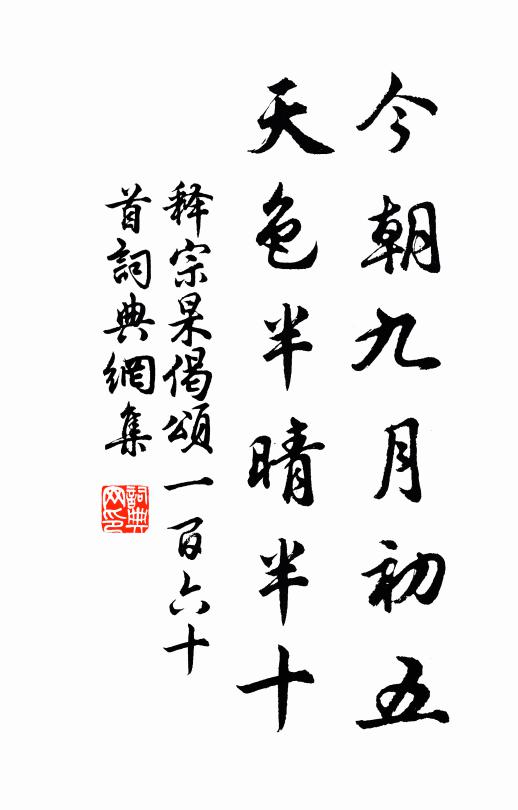 今朝九月初五
天色半晴半十
释宗杲偈頌一百六十
首詞典網集
詞典网印